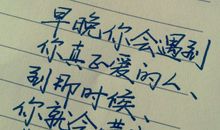 早晚你会遇到
你真正爱的人、
到那时候、
你就会